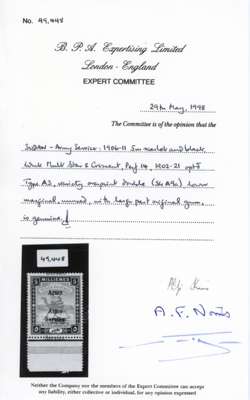 No. 49,448
B. P. A. Expertising Limited
London - England
EXPERT COMMITTEE
29th May, 1998
The Committee is of the opinion that the
SUDAN - Army Service: 1906-11 5m scarlet and black,
Wmk Mult Star & Crescent, Perf 14, 1902-21 opt'd
Type A3, variety overprint double (SG A9c) lower
marginal, unused, with large part original gum.
is genuine.
49,448
MILLIEMES
ARMY
Service
A. F. Norris
Neither the Company nor the members of the Expert Committee can accept
any liability, either collective or individual, for any opinion expressed